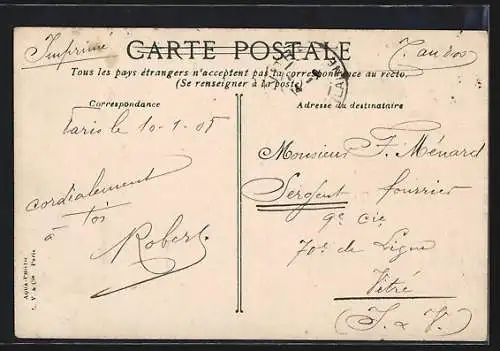 Imprimé
CARTE POSTALE
Tous les pays étrangers n'acceptent pas la correspondance au recto.
(Se renseigner à la poste)
Correspondance
Adresse du destinataire
Paris le 10-1-05
cordialement
à toi
Robert
Monsieur F. Ménard
Sergent fourrier
9e Cie
70e de Ligne
Vitré
(I. & V.)
Aqua-Photo
L. V. & Cie Paris